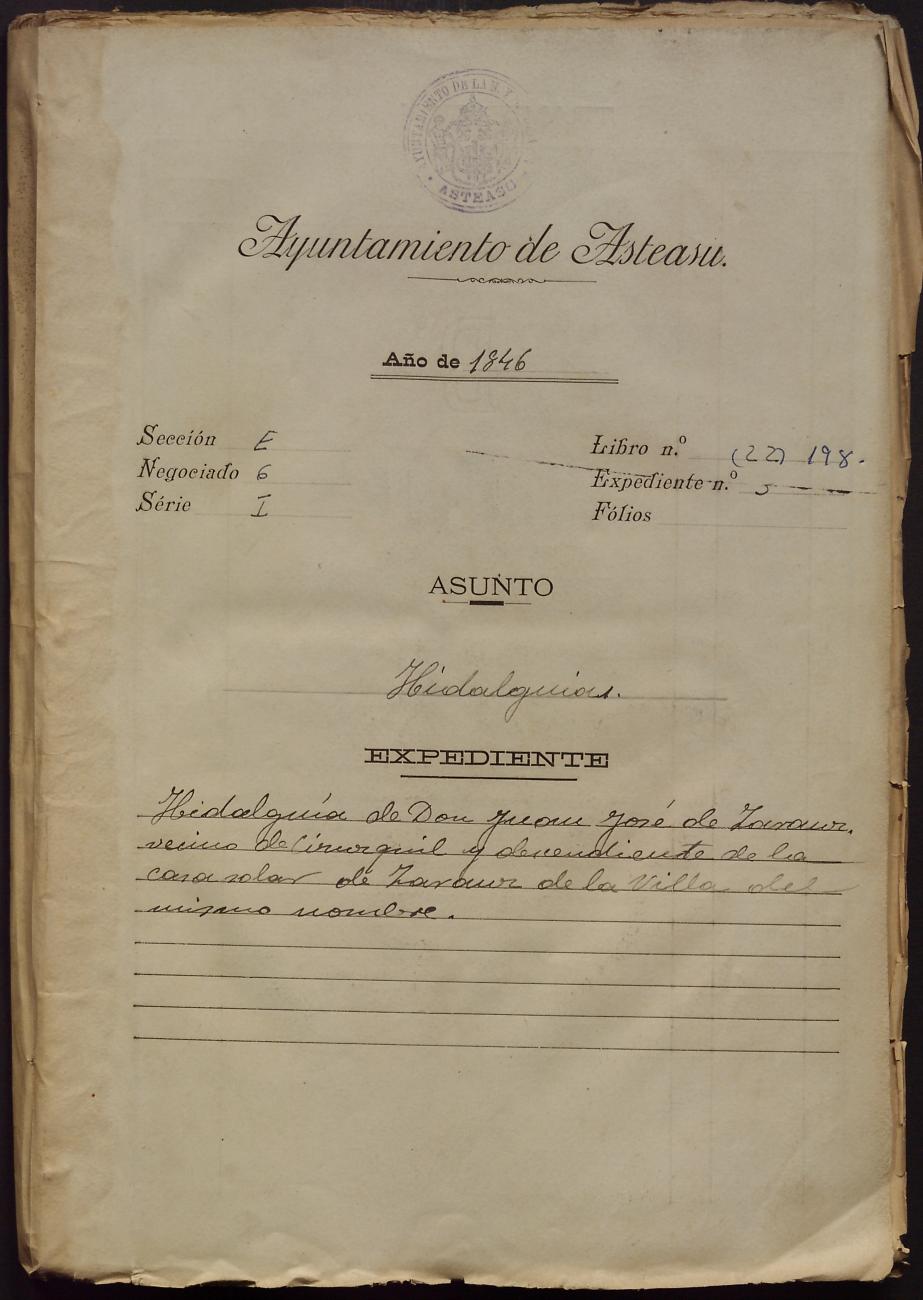 AYUNTAMIENTO DE LA N. Y
ASTEASU
Ayuntamiento de Asteasu.
Año de 1846
Sección E
Negociado 6
Série I
Libro n.º (22) 198.
Expediente n.º 5
Fólios
ASUNTO
Hidalguias.
EXPEDIENTE
Hidalguía de Don Juan José de Zarauz,
vecino de Cirurquil y descendiente de la
casa solar de Zarauz de la Villa del
mismo nombre.